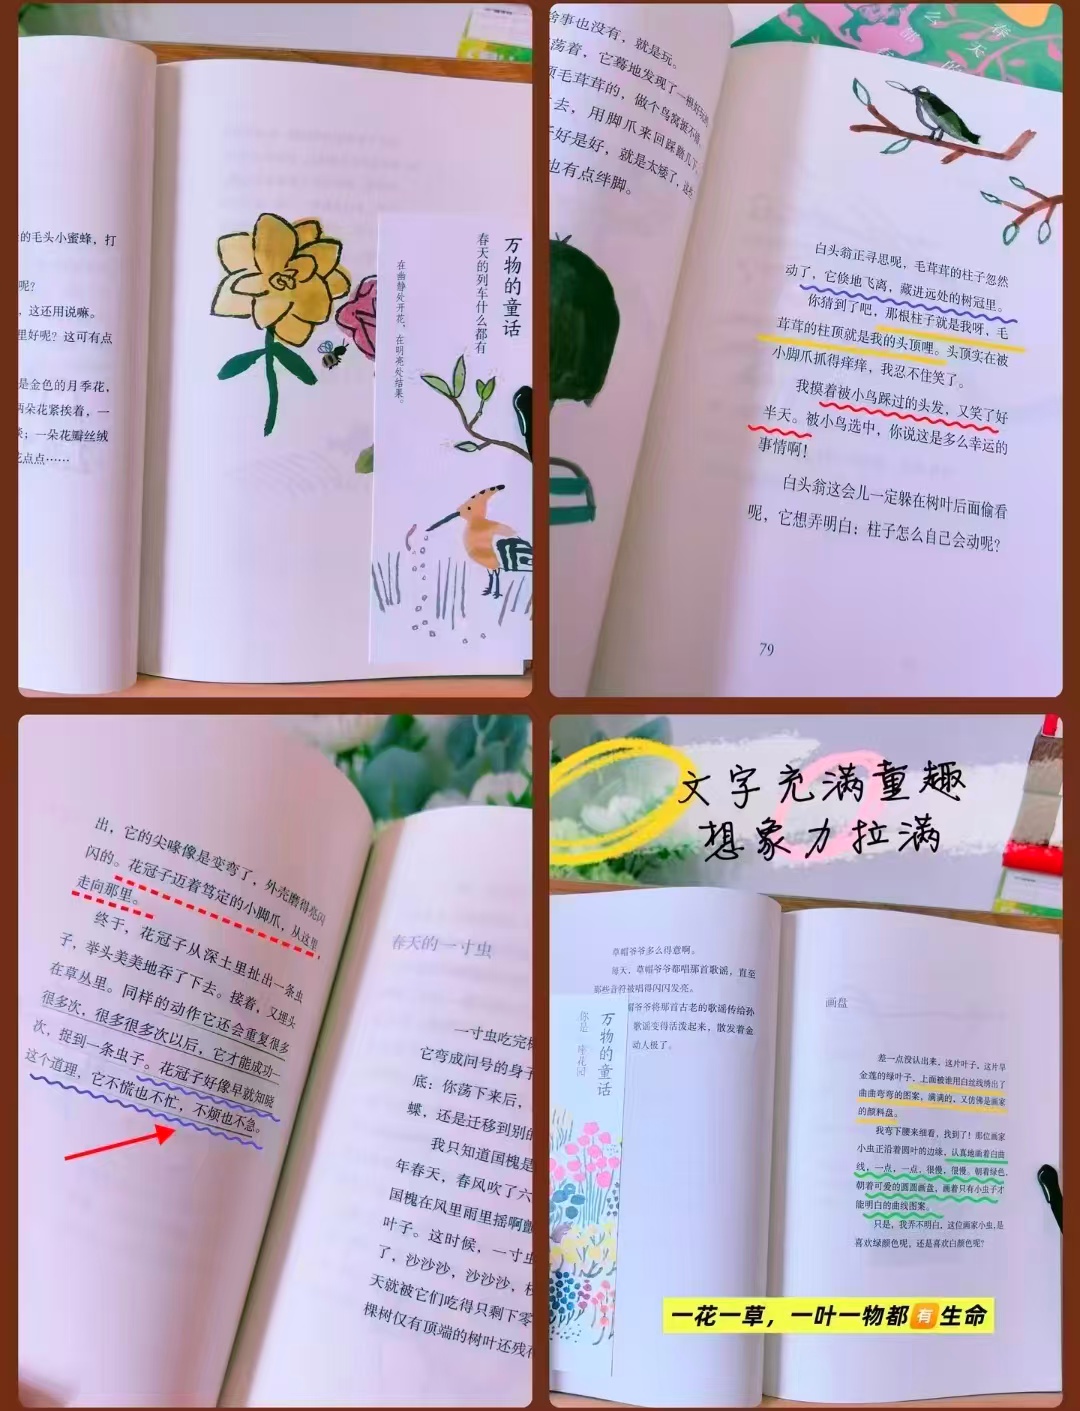 的毛头小蜜蜂，打
呢？
，这还用说嘛。
里好呢？这可有点
是金色的月季花，
两朵花紧挨着，一
；一朵花瓣丝绒
花点点……
万物的童话
春天的列车什么都有
在幽静处开花，在明亮处结果。
啥事也没有，就是玩。
荡着，它蓦地发现了一根好玩的
顶毛茸茸的，做个鸟窝挺不错。
去，用脚爪来回踩踏几下。
好是好，就是太矮了，
也有点绊脚。
白头翁正寻思呢，毛茸茸的柱子忽然
动了，它倏地飞离，藏进远处的树冠里。
你猜到了吧，那根柱子就是我呀，毛
茸茸的柱顶就是我的头顶哩。头顶实在被
小脚爪抓得痒痒，我忍不住笑了。
我摸着被小鸟踩过的头发，又笑了好
半天。被小鸟选中，你说这是多么幸运的
事情啊！
白头翁这会儿一定躲在树叶后面偷看
呢，它想弄明白：柱子怎么自己会动呢？
79
出，它的尖喙像是变弯了，外壳磨得亮闪
闪的。花冠子迈着笃定的小脚爪，从这里
走向那里。
终于，花冠子从深土里扯出一条虫
子，举头美美地吞了下去。接着，又埋头
在草丛里。同样的动作它还会重复很多
很多次，很多很多次以后，它才能成功一
次，捉到一条虫子。花冠子好像早就知晓
这个道理，它不慌也不忙，不烦也不急。
春天的一寸虫
一寸虫吃完
它弯成问号的身子
底：你荡下来后，
蝶，还是迁移到别的
我只知道国槐是
年春天，春风吹了六
国槐在风里雨里摇啊
叶子。这时候，一寸虫
了，沙沙沙，沙沙沙，
天就被它们吃得只剩下零
棵树仅有顶端的树叶还残存
文字充满童趣
想象力拉满
草帽爷爷多么得意啊。
每天，草帽爷爷都唱那首歌谣，直至
那些音符被唱得闪闪发亮。
帽爷爷将那首古老的歌谣传给孙
歌谣变得活泼起来，散发着金
动人极了。
万物的童话
你是一座花园
画盘
差一点没认出来，这片叶子，这片旱
金莲的绿叶子，上面被谁用白丝线绣出了
曲曲弯弯的图案，满满的，又仿佛是画家
的颜料盘。
我弯下腰来细看，找到了！那位画家
小虫正沿着圆叶的边缘，认真地画着白曲
线，一点，一点，很慢，很慢。朝着绿色，
朝着可爱的圆圆画盘，画着只有小虫子才
能明白的曲线图案。
只是，我弄不明白，这位画家小虫，是
喜欢绿颜色呢，还是喜欢白颜色呢？
一花一草，一叶一物都有生命